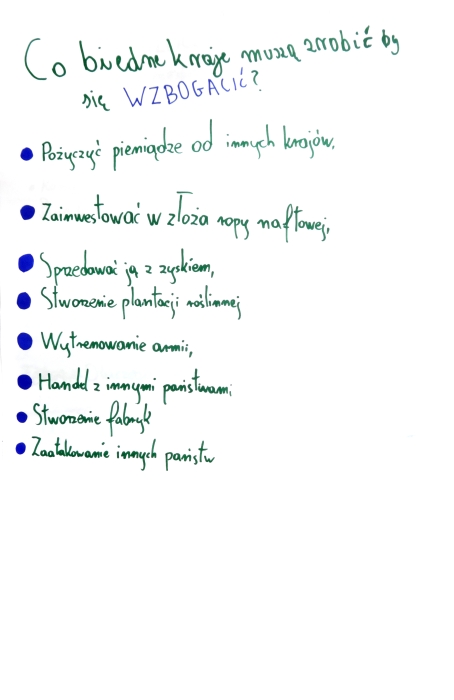 Co biedne kraje muszą zrobić by
się WZBOGACIĆ?
• Pożyczyć pieniądze od innych krajów,
• Zainwestować w złoża ropy naftowej,
• Sprzedawać ją z zyskiem,
• Stworzenie plantacji roślinnej
• Wytrenowanie armii,
• Handel z innymi państwami,
• Stworzenie fabryk
• Zaatakowanie innych państw